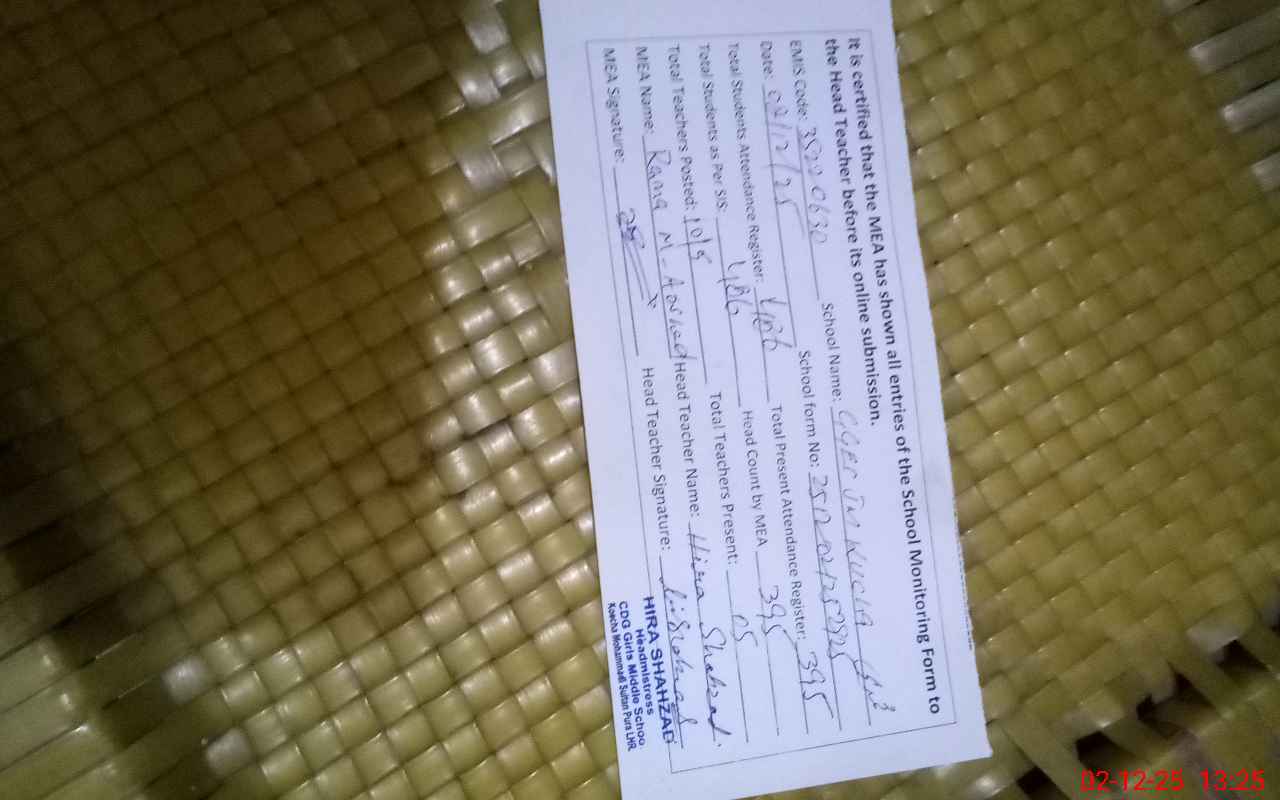 It is certified that the MEA has shown all entries of the School Monitoring Form to
the Head Teacher before its online submission.
EMIS Code: 35220630 School Name:
Date: 02/12/25 School form No:
Total Students Attendance Register: 486 Total Present Attendance Register: 395
Total Students as Per SIS: 486 Head Count by MEA 395
Total Teachers Posted: Total Teachers Present: 05
MEA Name: Rana M- Arshad Head Teacher Name: Hira Shahzad.
MEA Signature: Head Teacher Signature:
HIRA SHAHZAD
Headmistress
CDG Girls Middle Schoo
Koocha Mohammadi Sultan Pura LHR.
02-12-25 13:25